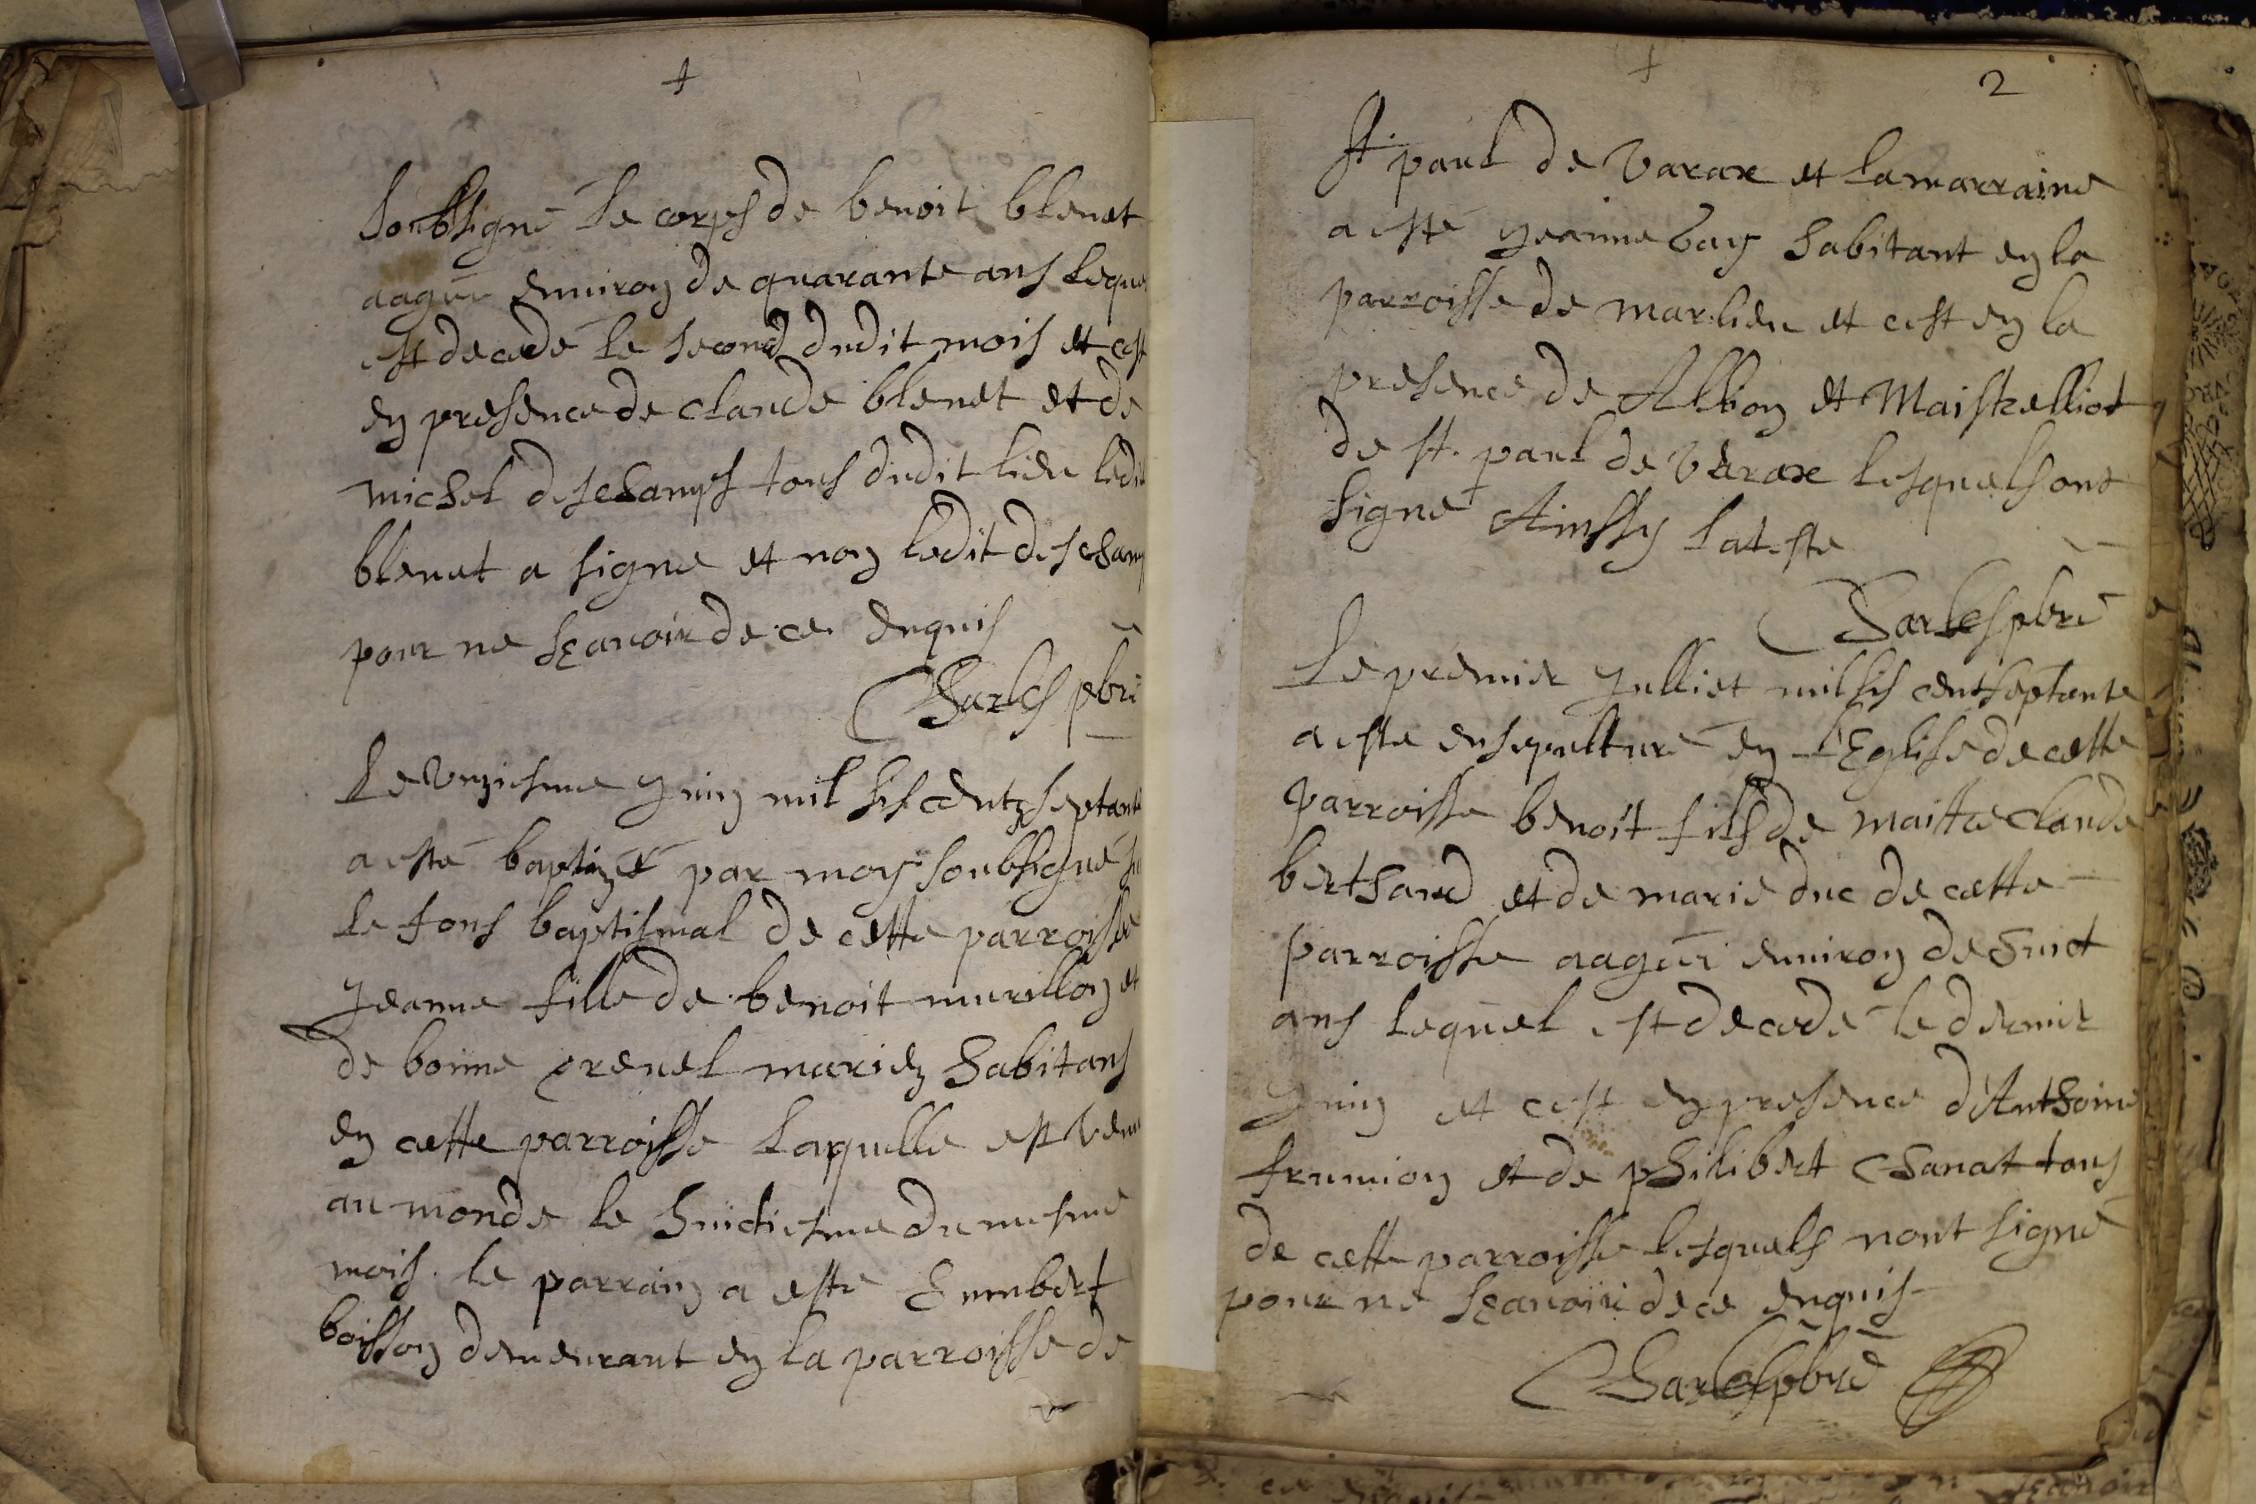 soubsigné le corps de benoit blenet
aagué enuiron de quarante ans leque
est decedé le second dudit mois et cest
en presence de claude blenet et de
michel deschamps tous dudit lieu ledit
blenet a signe et non ledit descham
pour ne sçauoir de ce enquis
Charles pbrē
Le Vnziesme Juin mil sis centz septante
a esté baptizé par moy soubsigné su
le fons baptismal de cette parroisse
Jeanne fille de benoit murillon et
de bonne preuel mariez habitans
en cette parroisse laquelle est venu
au monde le huictiesme du mesme
mois. le parrain a este humbert
boisson demeurant en la parroisse de
2
St paul de Varax et la marraine
a esté Jeanne habitant en la
parroisse de marlieu et cest en la
presence de Albion et Maistrelliot
de st. paul de Varax lesquels ont
signé Ainssy latesté
Charles pbrē
Le premier Julliet mil sis cent septante
a este ensepulturé en L'Eglise de cette
parroisse benoit fils de maitre Claude
berthaud et de marie duc de cette
parroisse aagué enuiron de huict
ans lequel est decedé le dernier
Juin et cest en presence d'Anthoine
frumion et de philibert Chanat tous
de cette parroisse lesquels nont signé
pour ne sçauoir de ce enquis
Charles pbrē